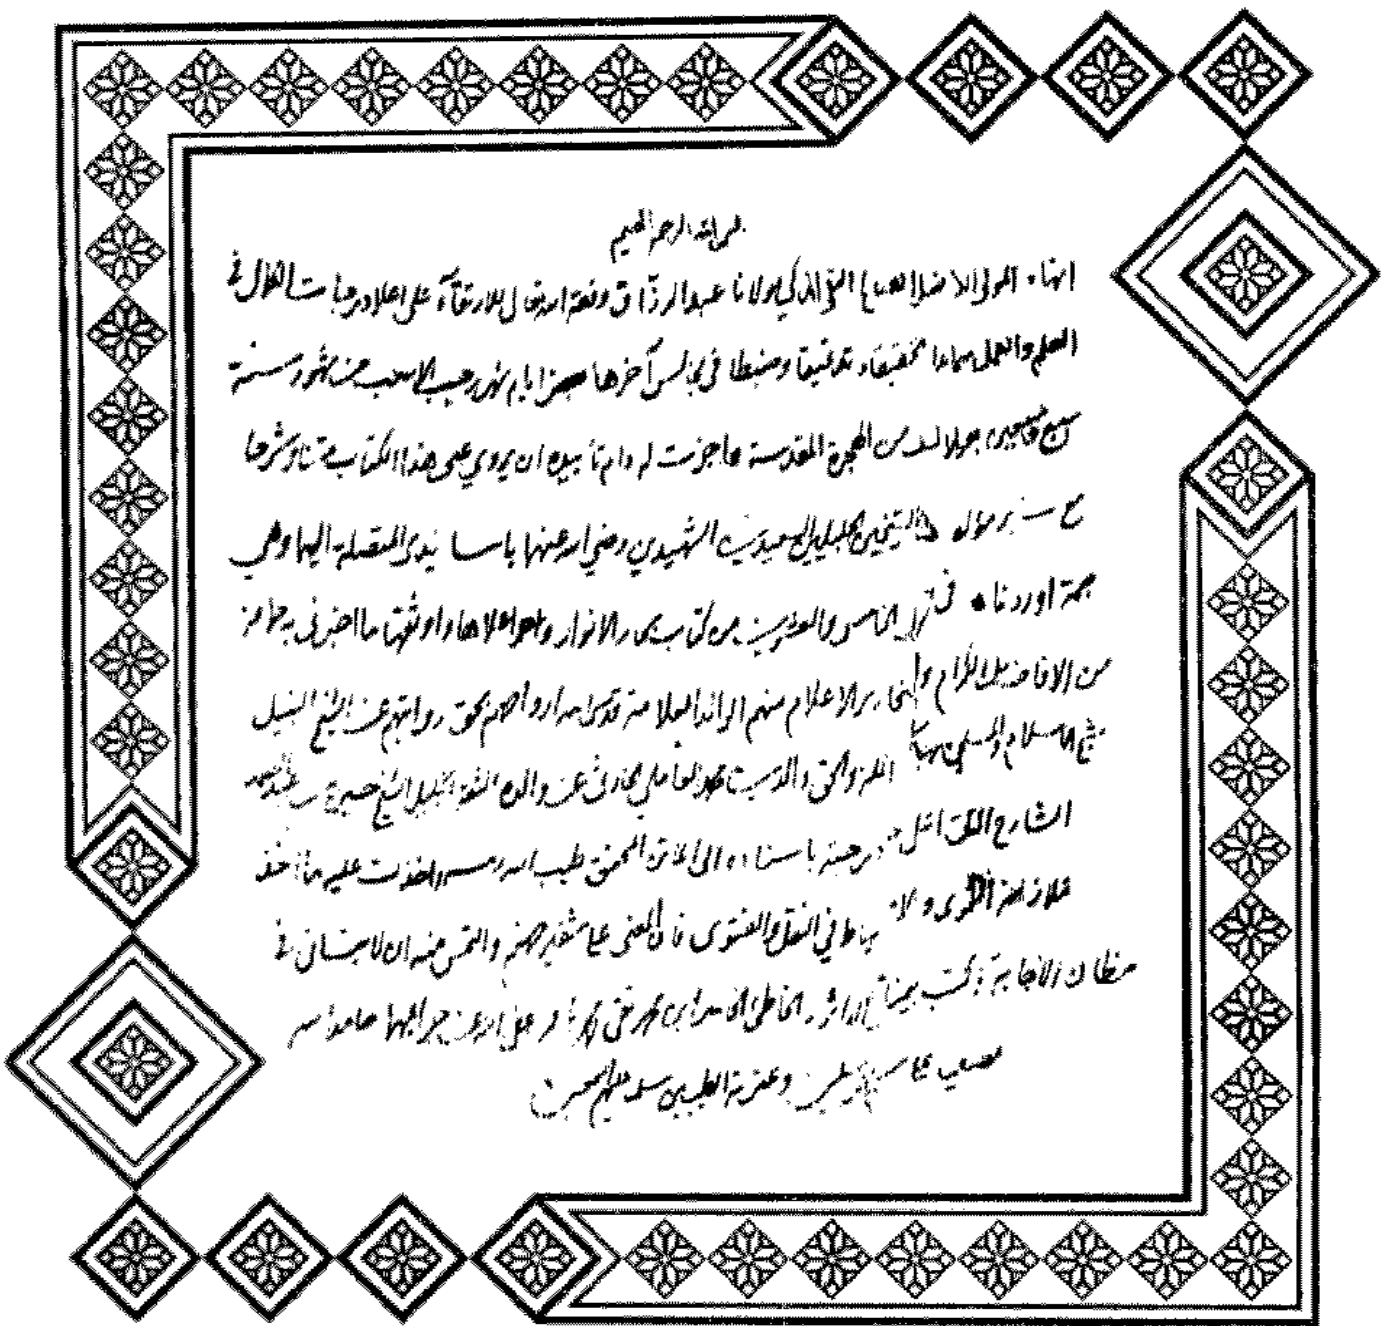 بسم الله الرحمن الرحيم
انهاه المولى الاضل الصالح التقي الذكي مولانا عبد الرزاق وفقه الله تعالى للارتقاء على اعلا درجات الكمال في
العلم والعمل سماعا وتحقيقا وتدقيقا وضبطا في مجالس آخرها بعض ايام شهر رجب الاصب من شهور سنة
سبع وتسعين بعد الالف من الهجرة المقدسة فاجزت له دام تأييده ان يروي عني هذا الكتاب متنا وشرحا
مع سائر مؤلفات الشيخين الجليلين السعيدين الشهيدين رضي الله عنهما باسانيدي المتصلة اليهما وهي
جمة اوردناه في الخامس والعشرين من كتاب بحار الانوار واعلاها واوثقها ما اخبرني به جم غفير
من الافاضل الكرام والنحارير الاعلام منهم الوالد العلامة قدس الله ارواحهم بحق روايتهم عن الشيخ النبيل
شيخ الاسلام والمسلمين بهاء الملة والحق والدين محمد العاملي الحارثي عن والده الثقة الجليل الشيخ حسين بن عبد الصمد
الشارح المحقق درجته باسناده الى الماتن المحقق طيب الله رمسه واخذت عليه ما اخذ
ملازمة التقوى و في النقل والفتوى فان المفتي على شفير جهنم والتمس منه ان لا ينساني في
مظان الاجابة وكتب بيمناه الداثرة الخاطئ الخاسر ابن محمد تقي محمد باقر عفى الله عن جرائمهما حامدا
مصليا على سيد المرسلين وعترته الطيبين